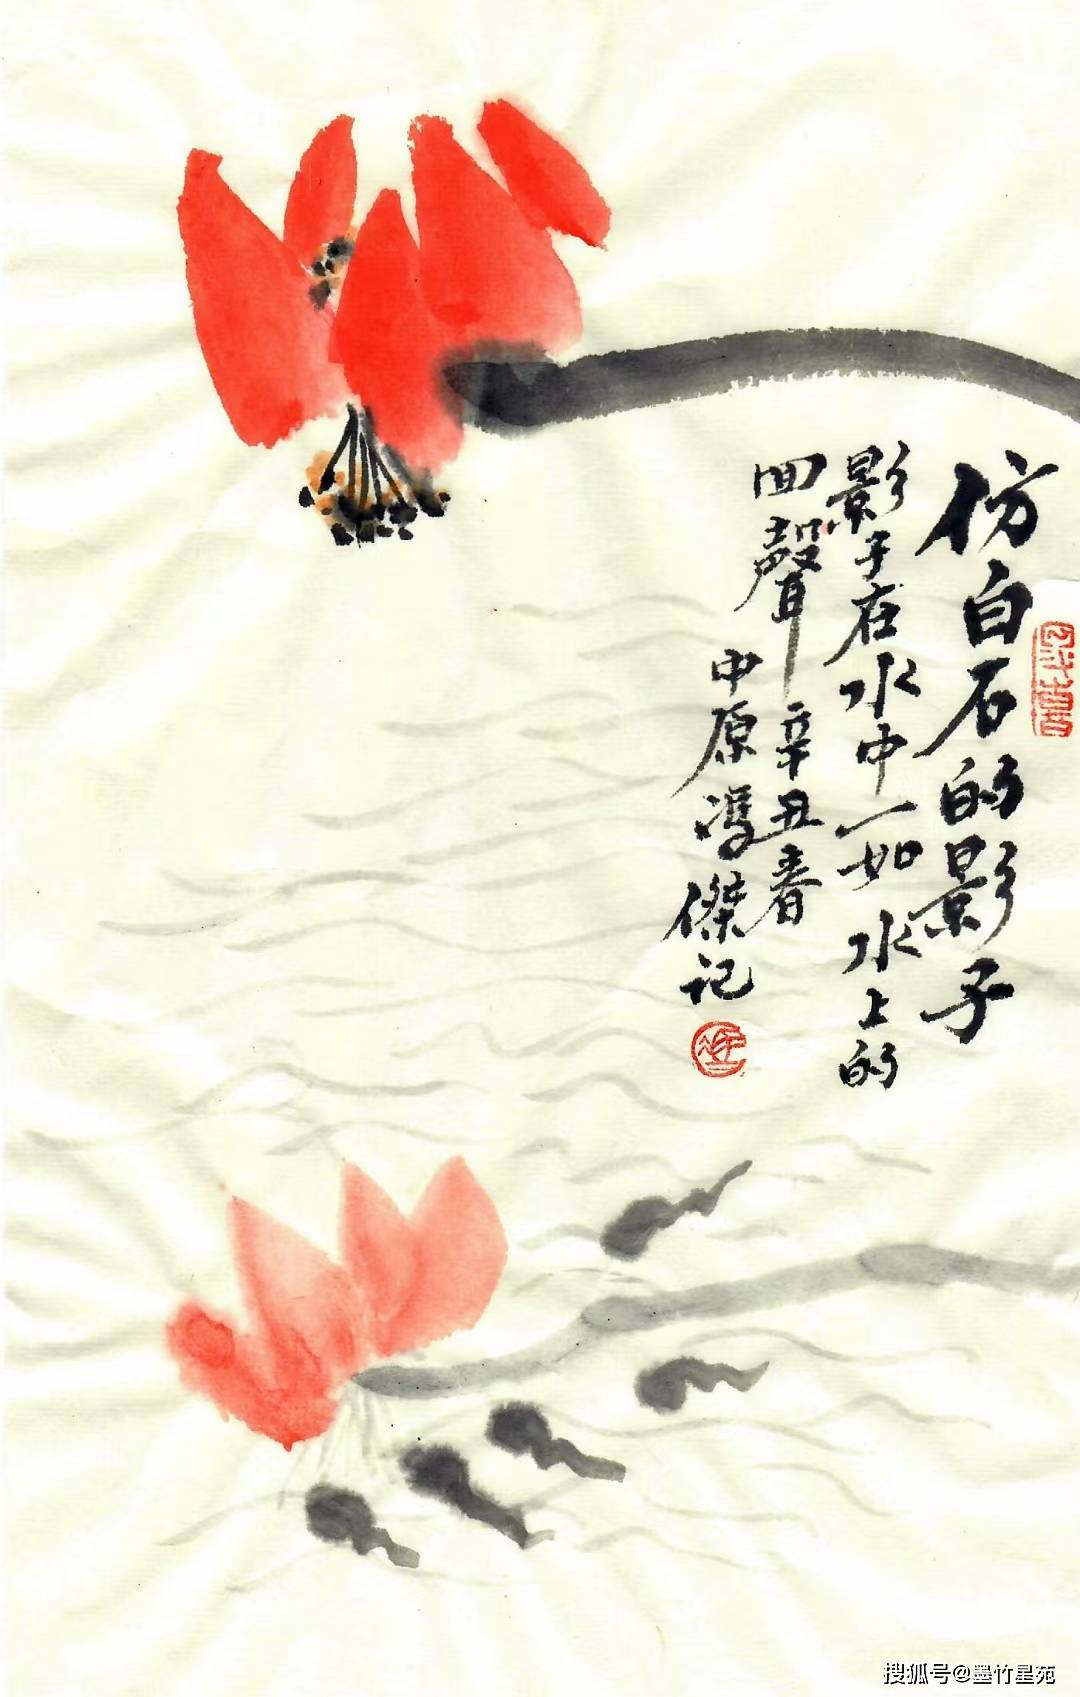 仿白石的影子
影子在水中一如水上的
回聲 辛丑春
中原馮傑記
搜狐号@墨竹星苑